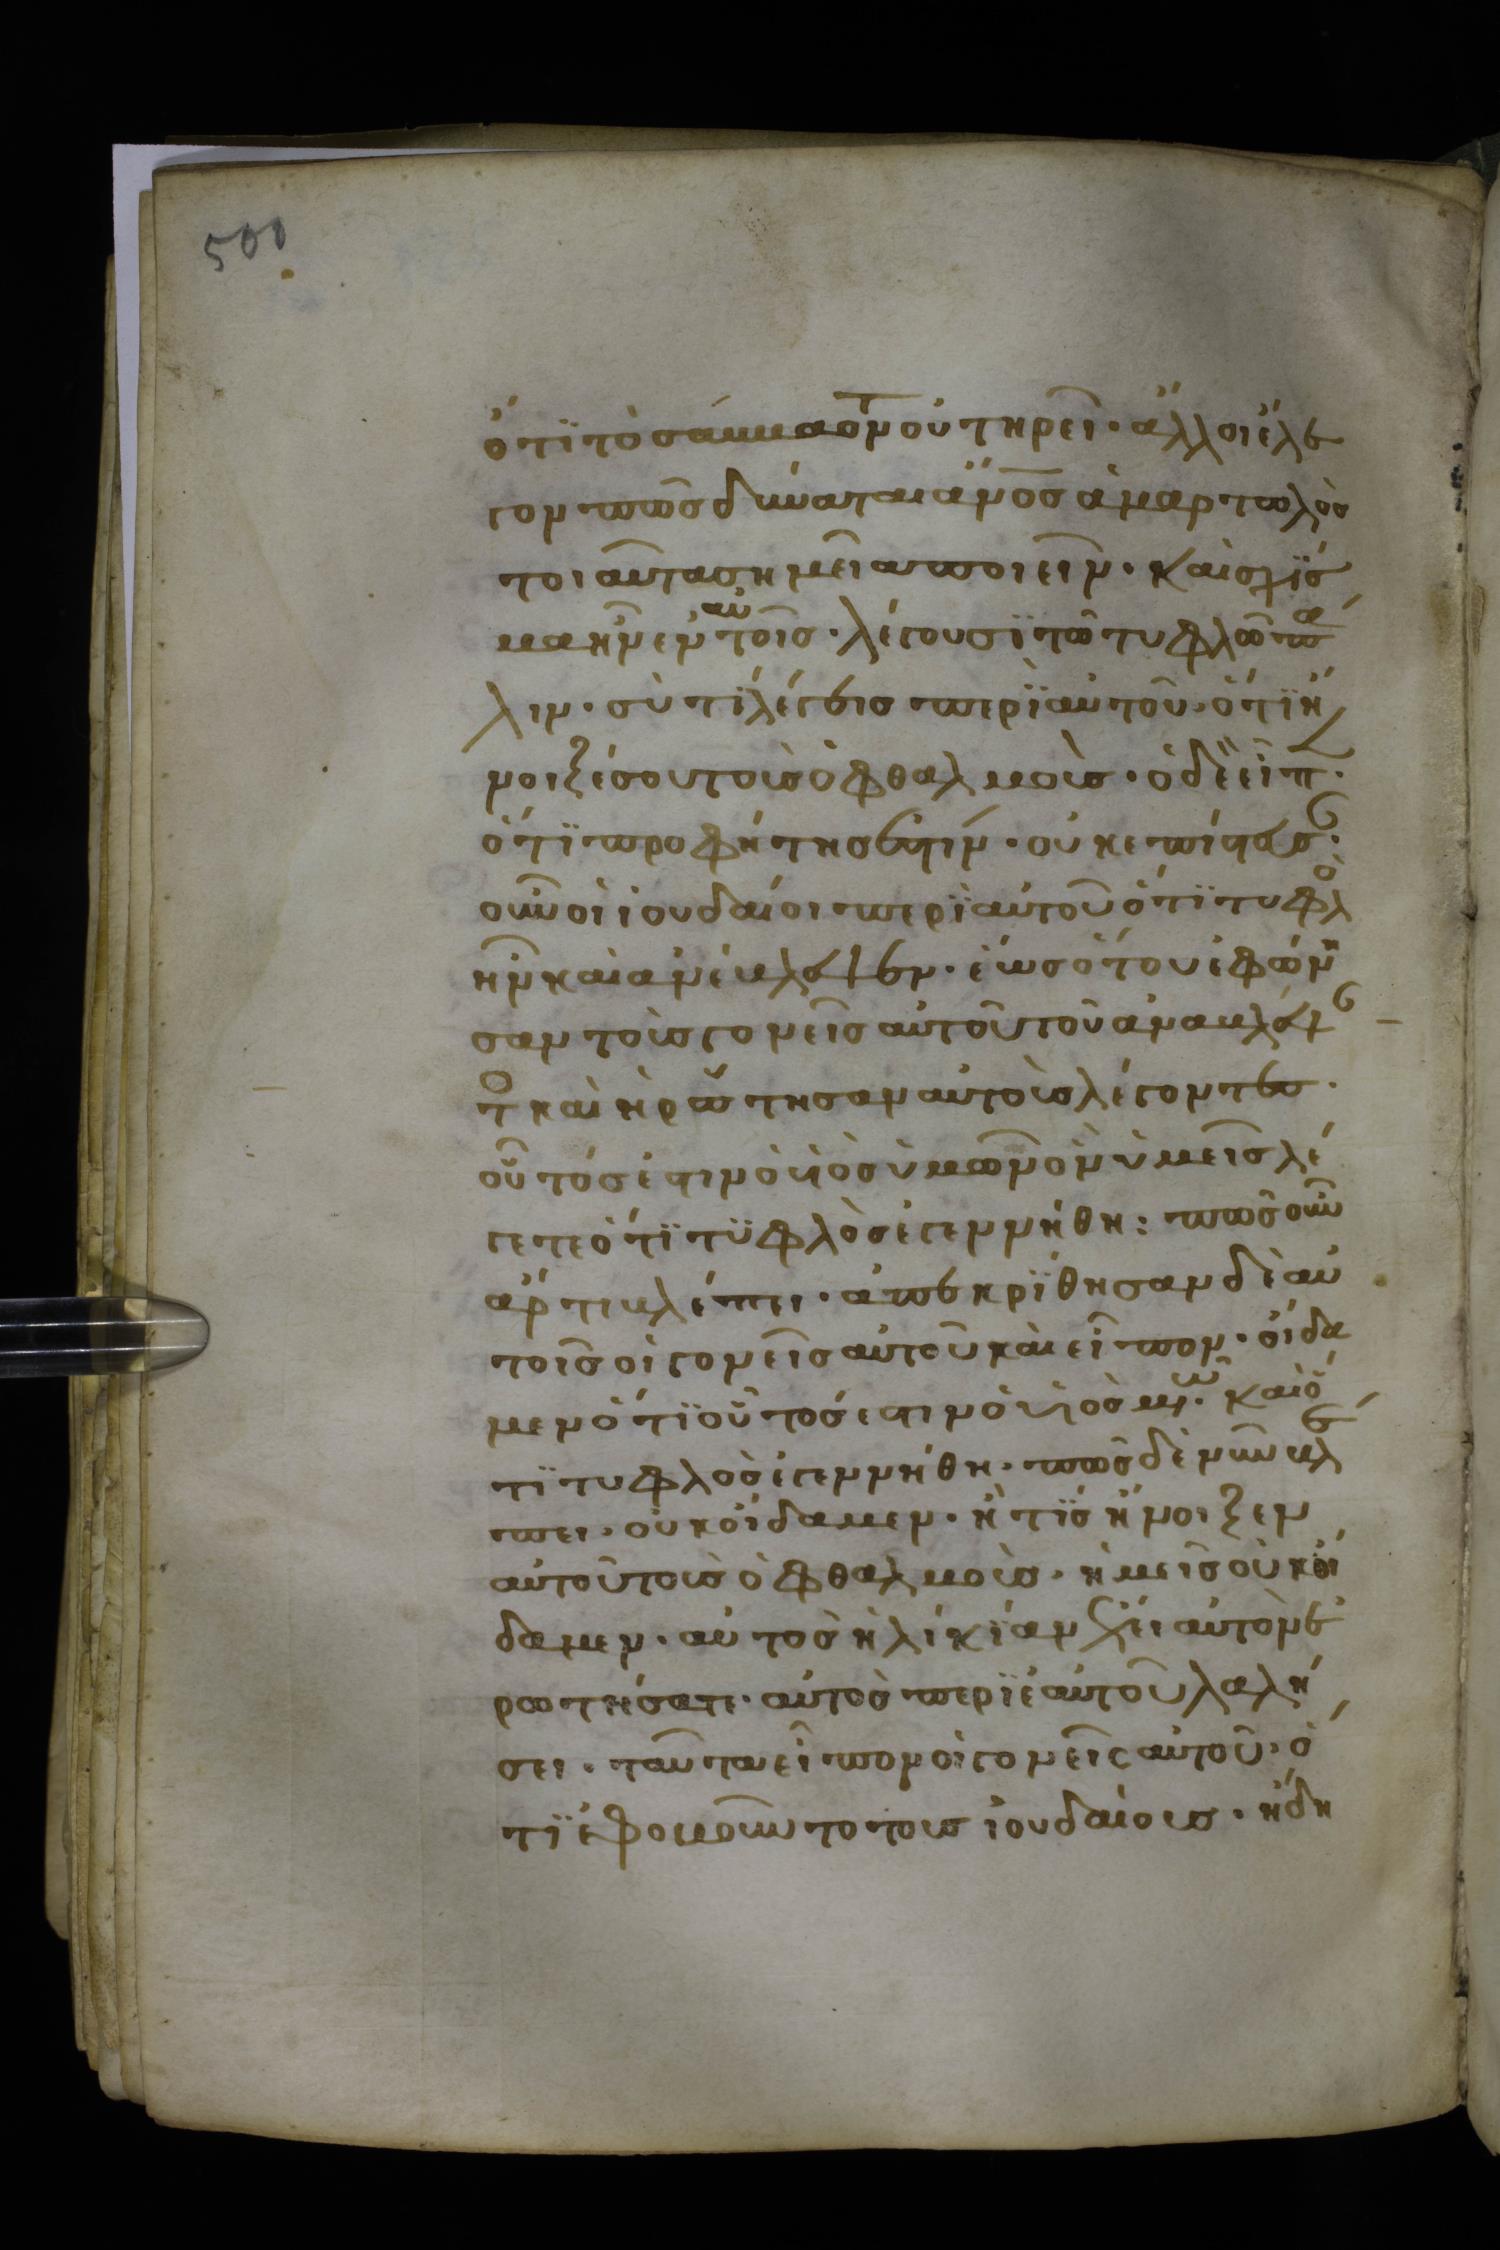 500
ὅτι τὸ σάββατον οὐ τηρεῖ· ἄλλοι ἔλε
γον πῶς δύναται ἄνος ἁμαρτωλὸς
τοιαῦτα σημεῖα ποιεῖν· καὶ σχίσ
μα ἦν ἐν αὐτοῖς· λέγουσι τῶ τυφλῶ πά
λιν· σὺ τί λέγεις περὶ αὐτοῦ· ὅτι ἤ
νοιξέ σου τοὺς ὀφθαλμούς· ὁ δὲ εἶπ·
ὅτι προφήτης ἐστίν· οὐκ ἐπίστευσ·
οὖν οἱ ἰουδαίοι περὶ αὐτοῦ ὅτι τυφλὸ
ἦν καὶ ἀνέβλεψεν· ἕως ὅτου ἐφών
σαν τοὺς γονεῖς αὐτοῦ τοῦ ἀναβλέψ
τ καὶ ἠρώτησαν αὐτοὺς λέγοντες·
οὗτός ἐστιν ὁ υἱὸς ὑμῶν ὃν ὑμεῖς λέ
γετε ὅτι τυφλὸς ἐγεννήθη: πῶς οὖν
ἄρτι βλέπει· ἀπεκρίθησαν δὲ αὐ
τοῖς οἱ γονεῖς αὐτοῦ καὶ εἶπον· οἴδα
μεν ὅτι οὗτός ἐστιν ὁ υἱὸς ἡμῶν· καὶ ὅ
τι τυφλὸς ἐγεννήθη· πῶς δὲ νῦν βλέ
πει· οὐκ οἴδαμεν· ἢ τίς ἤνοιξεν
αὐτοῦ τοὺς ὀφθαλμούς· ἡμεῖς οὐκ οἴ
δαμεν· αὐτὸς ἡλικίαν ἔχει αὐτὸν ἐ
ρωτήσατε· αὐτὸς περὶ ἑαυτοῦ λαλή
σει· ταῦτα εἶπον οἱ γονεῖς αὐτοῦ· ὅ
τι ἐφοβοῦντο τοὺς ἰουδαίους· ἤδη